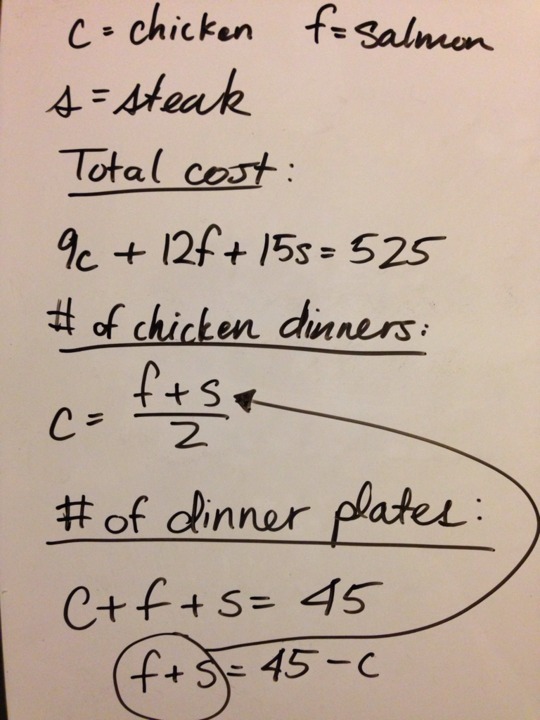 c = chicken f = salmon
s = steak
Total cost:
9c + 12f + 15s = 525
# of chicken dinners:
c = (f + s)/2
# of dinner plates:
c + f + s = 45
f + s = 45 - c